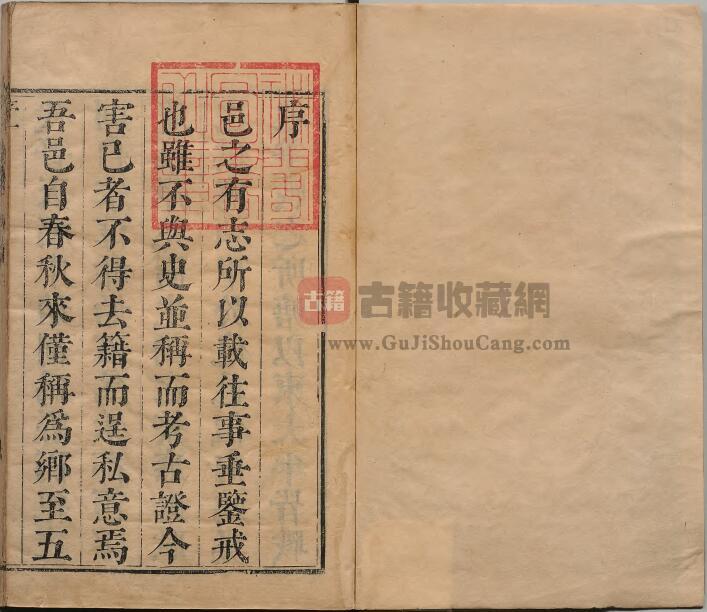 序
邑之有志所以載往事垂鑒戒
也雖不與史並稱而考古證今
害已者不得去籍而逞私意焉
吾邑自春秋來僅稱為鄉至五
序一
古籍
古籍收藏網
www.GuJiShouCang.com